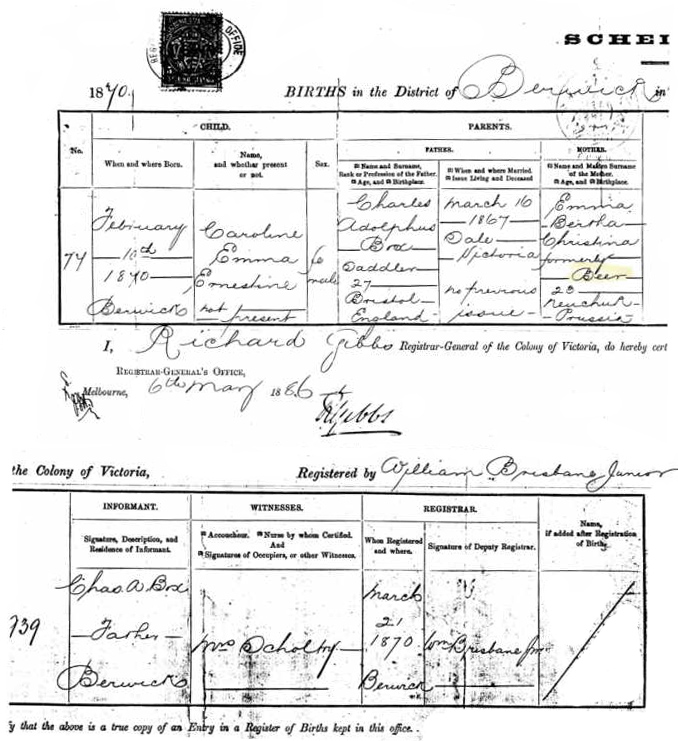 OFFICE
SCHE
1870. BIRTHS in the District of Berwick in
CHILD.
PARENTS.
FATHER.
MOTHER.
No.
When and where Born.
Name, and whether present or not.
Sex.
Name and Surname, Rank or Profession of the Father. Age, and Birthplace.
When and where Married. Issue Living and Deceased
Name and Maiden Surname of the Mother. Age, and Birthplace.
74
February
10th
1870
Berwick
Caroline
Emma
Ernestine
not
present
fe
male
Charles
Adolphus
Box
Saddler
27
Bristol
England
March 16
1867
Dale
Victoria
no previous
issue
Emma
Bertha
Christina
formerly
Beer
23
Prussia
I, Richard Gibbs Registrar-General of the Colony of Victoria, do hereby cert
REGISTRAR-GENERAL'S OFFICE,
Melbourne, 6th May 1886
RGibbs
the Colony of Victoria, Registered by William Brisbane Junior
INFORMANT.
WITNESSES.
REGISTRAR.
Name, if added after Registration of Birth.
Signature, Description, and Residence of Informant.
Accoucheur. Nurse by whom Certified. And Signatures of Occupiers, or other Witnesses.
When Registered and where.
Signature of Deputy Registrar.
739
Chas A Box
Father
Berwick
Mrs
March
21
1870
Berwick
Wm Brisbane Jnr
y that the above is a true copy of an Entry in a Register of Births kept in this office.